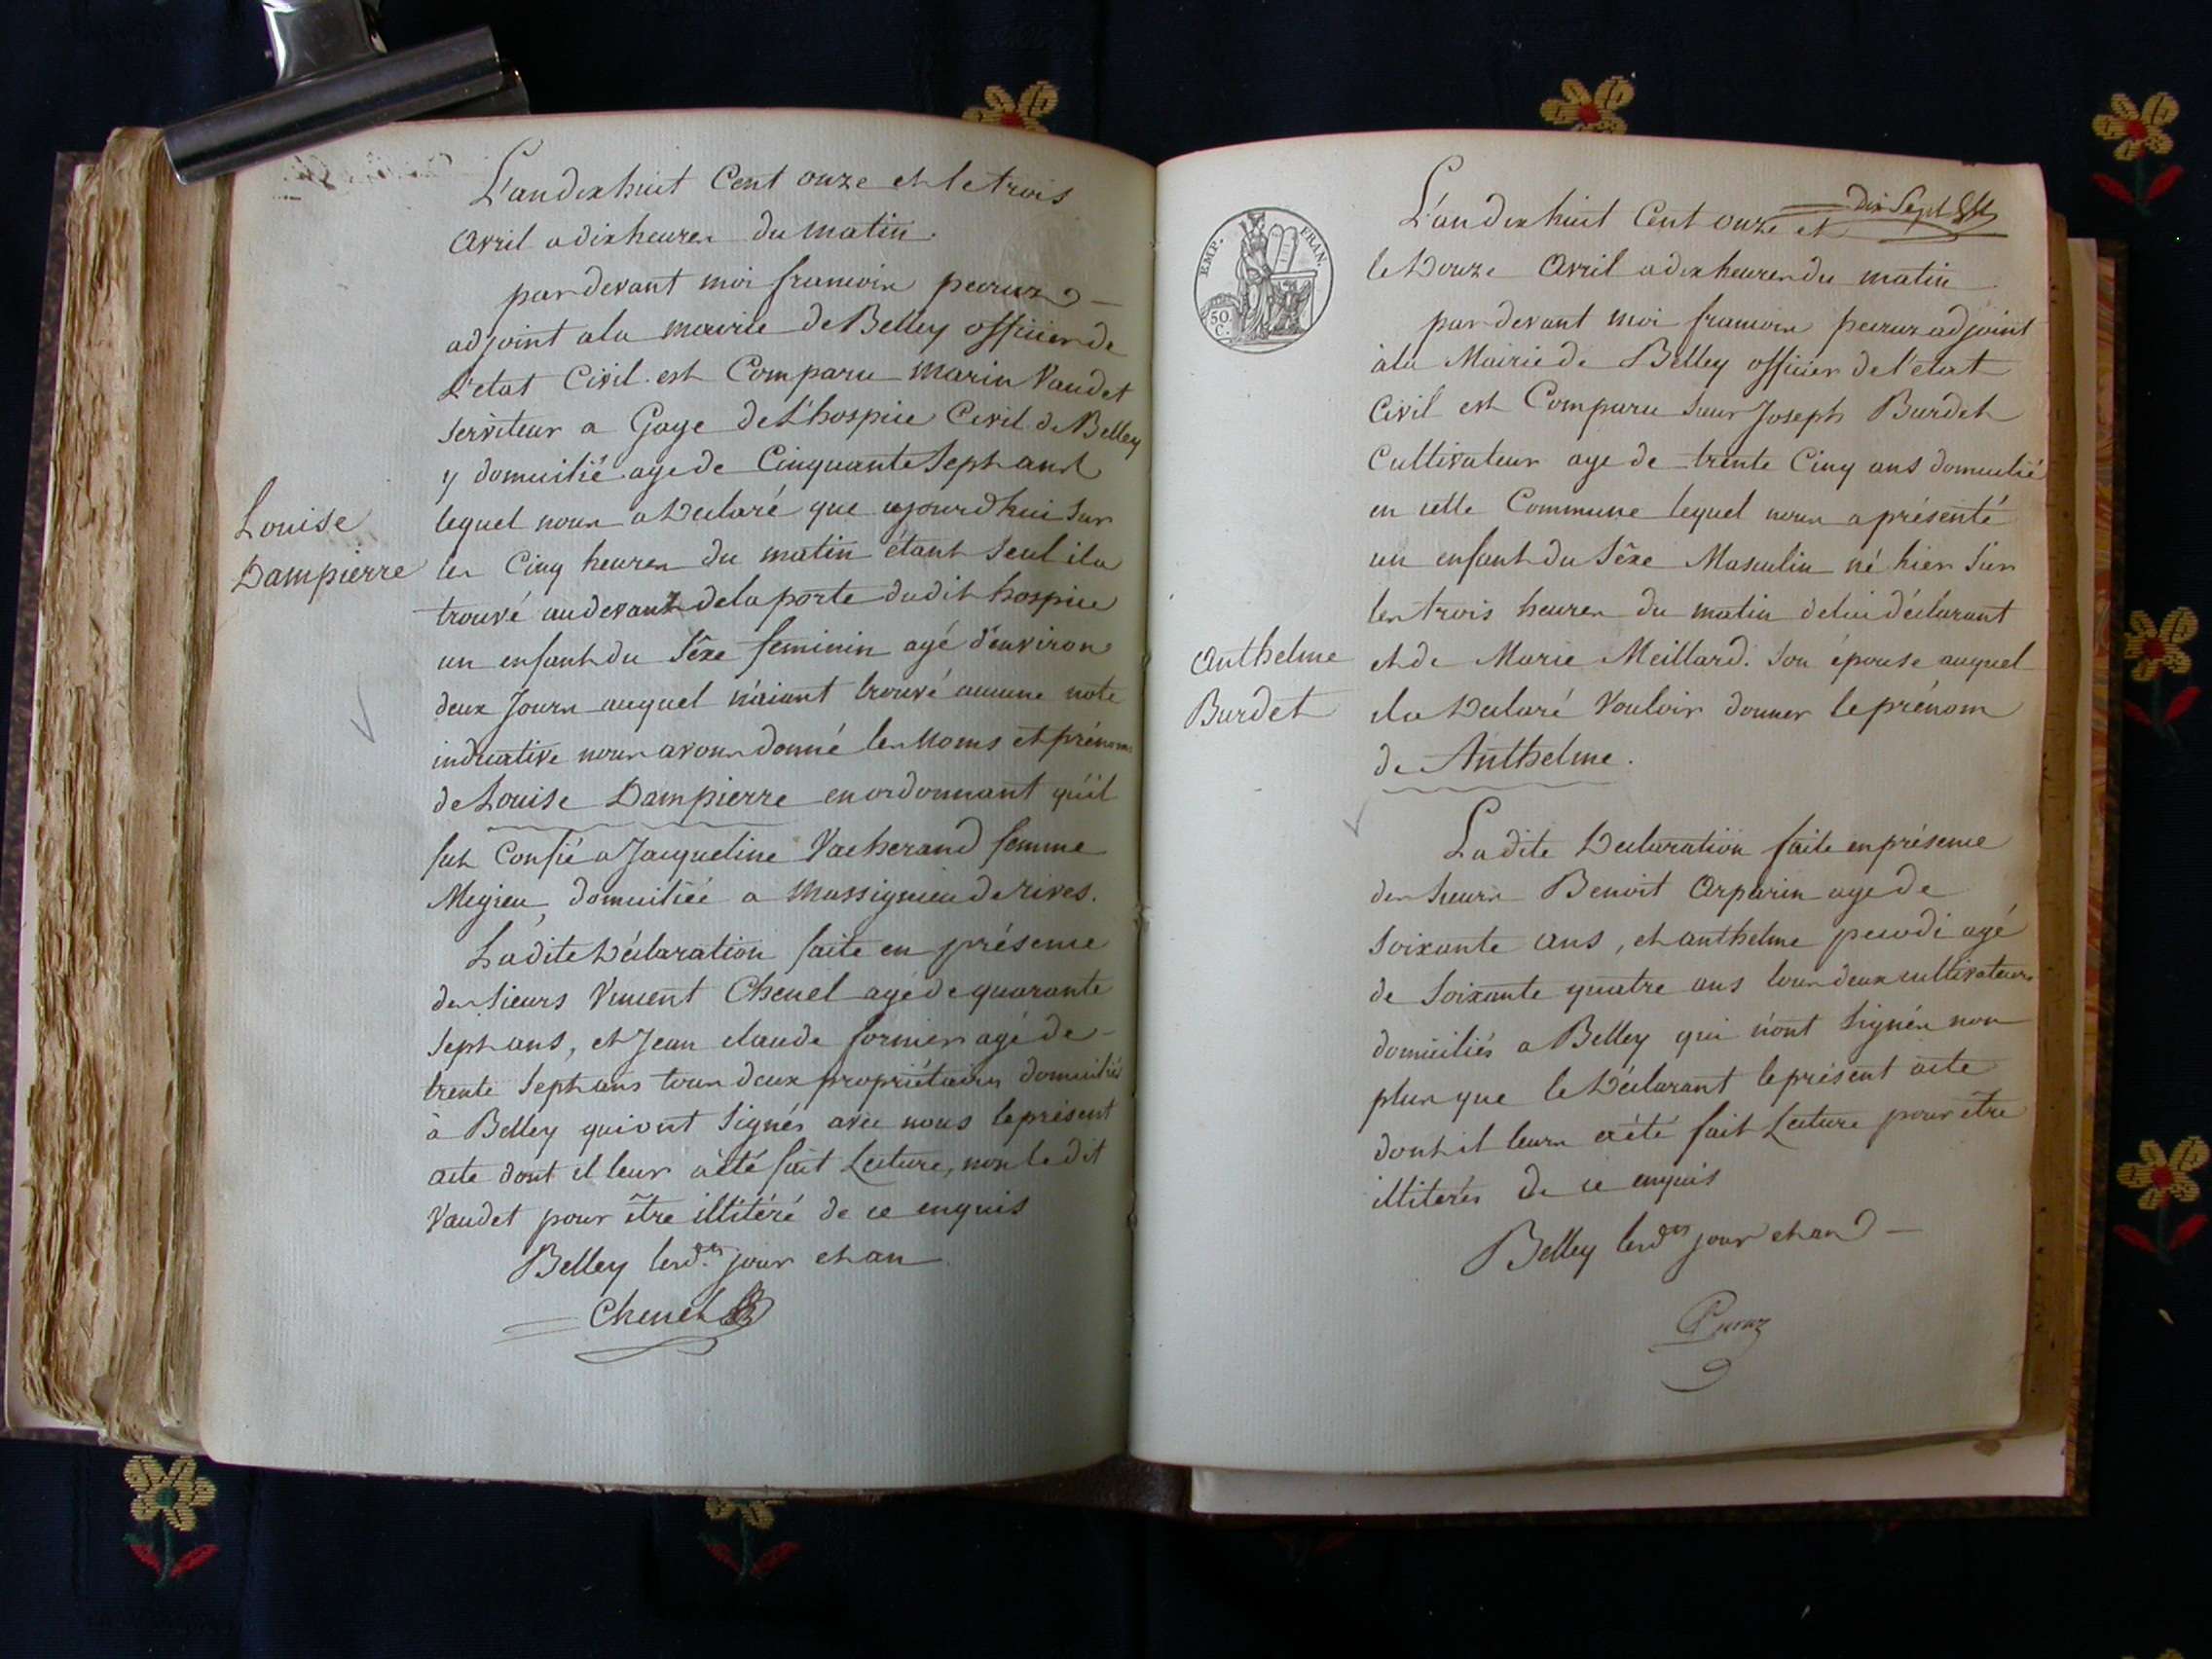 L'an dix huit Cent onze et le trois
Avril a dix heures du matin.
par devant moi francois peeruz
adjoint a la mairie de Belley officier de
L'etat Civil est Comparu Marin Vaudet
serviteur a Gage de L'hospice Civil de Belley
y domicilié age de Cinquante Sept ans
Louise
Dampierre
lequel nous a Déclaré que ajourd'hui sur
les Cinq heures du matin étant seul il a
trouvé au devant de la porte du dit hospice
un enfant du Sêxe feminin agé d'environ
deux Jours auquel n'aiant trouvé aucune note
indicative nous avons donné les Noms et prénoms
de Louise Dampierre en ordonnant qu'il
fut Confié a Jacqueline Vacherand femme
Megieu, domiciliéé a Massignieu de rives.
La dite Déclaration faite en présence
des sieurs Vincent Chenel agé de quarante
Sept ans, et Jean claude fornier agé de
trente Sept ans tous deux propriétaires domiciliés
à Belley qui ont Signés avec nous le présent
acte dont il leur à été fait Lecture, non le dit
Vaudet pour être illitéré de ce enquis
Belley les d.es jour et an
Chenel
dix Sept
L'an dix huit Cent onze et
le Douze Avril a dix heures du matin
EMP. FRAN.
50
C.
par devant moi francois peeruz adjoint
à la Mairie de Belley officier de l'etat
Civil est Comparu Sieur Joseph Burdet
Cultivateur age de trente Cinq ans domicilié
en cette Commune lequel nous a présenté
un enfant du Sêxe Masculin né hier Sur
les trois heures du matin de lui déclarant
Anthelme
Burdet
et de Marie Meillard. Son épouse auquel
il a Déclaré Vouloir donner le prénom
de Anthelme.
La dite Déclaration faite en présence
des Sieurs Benoit Arparin age de
Soixante ans, et anthelme pecodi agé
de Soixante quatre ans tous deux cultivateurs
domiciliés a Belley qui n'ont Signés non
plus que le Déclarant le présent acte
dont il leurs a été fait Lecture pour être
illiterés de ce enquis
Belley les d.es jour et an
Peeruz